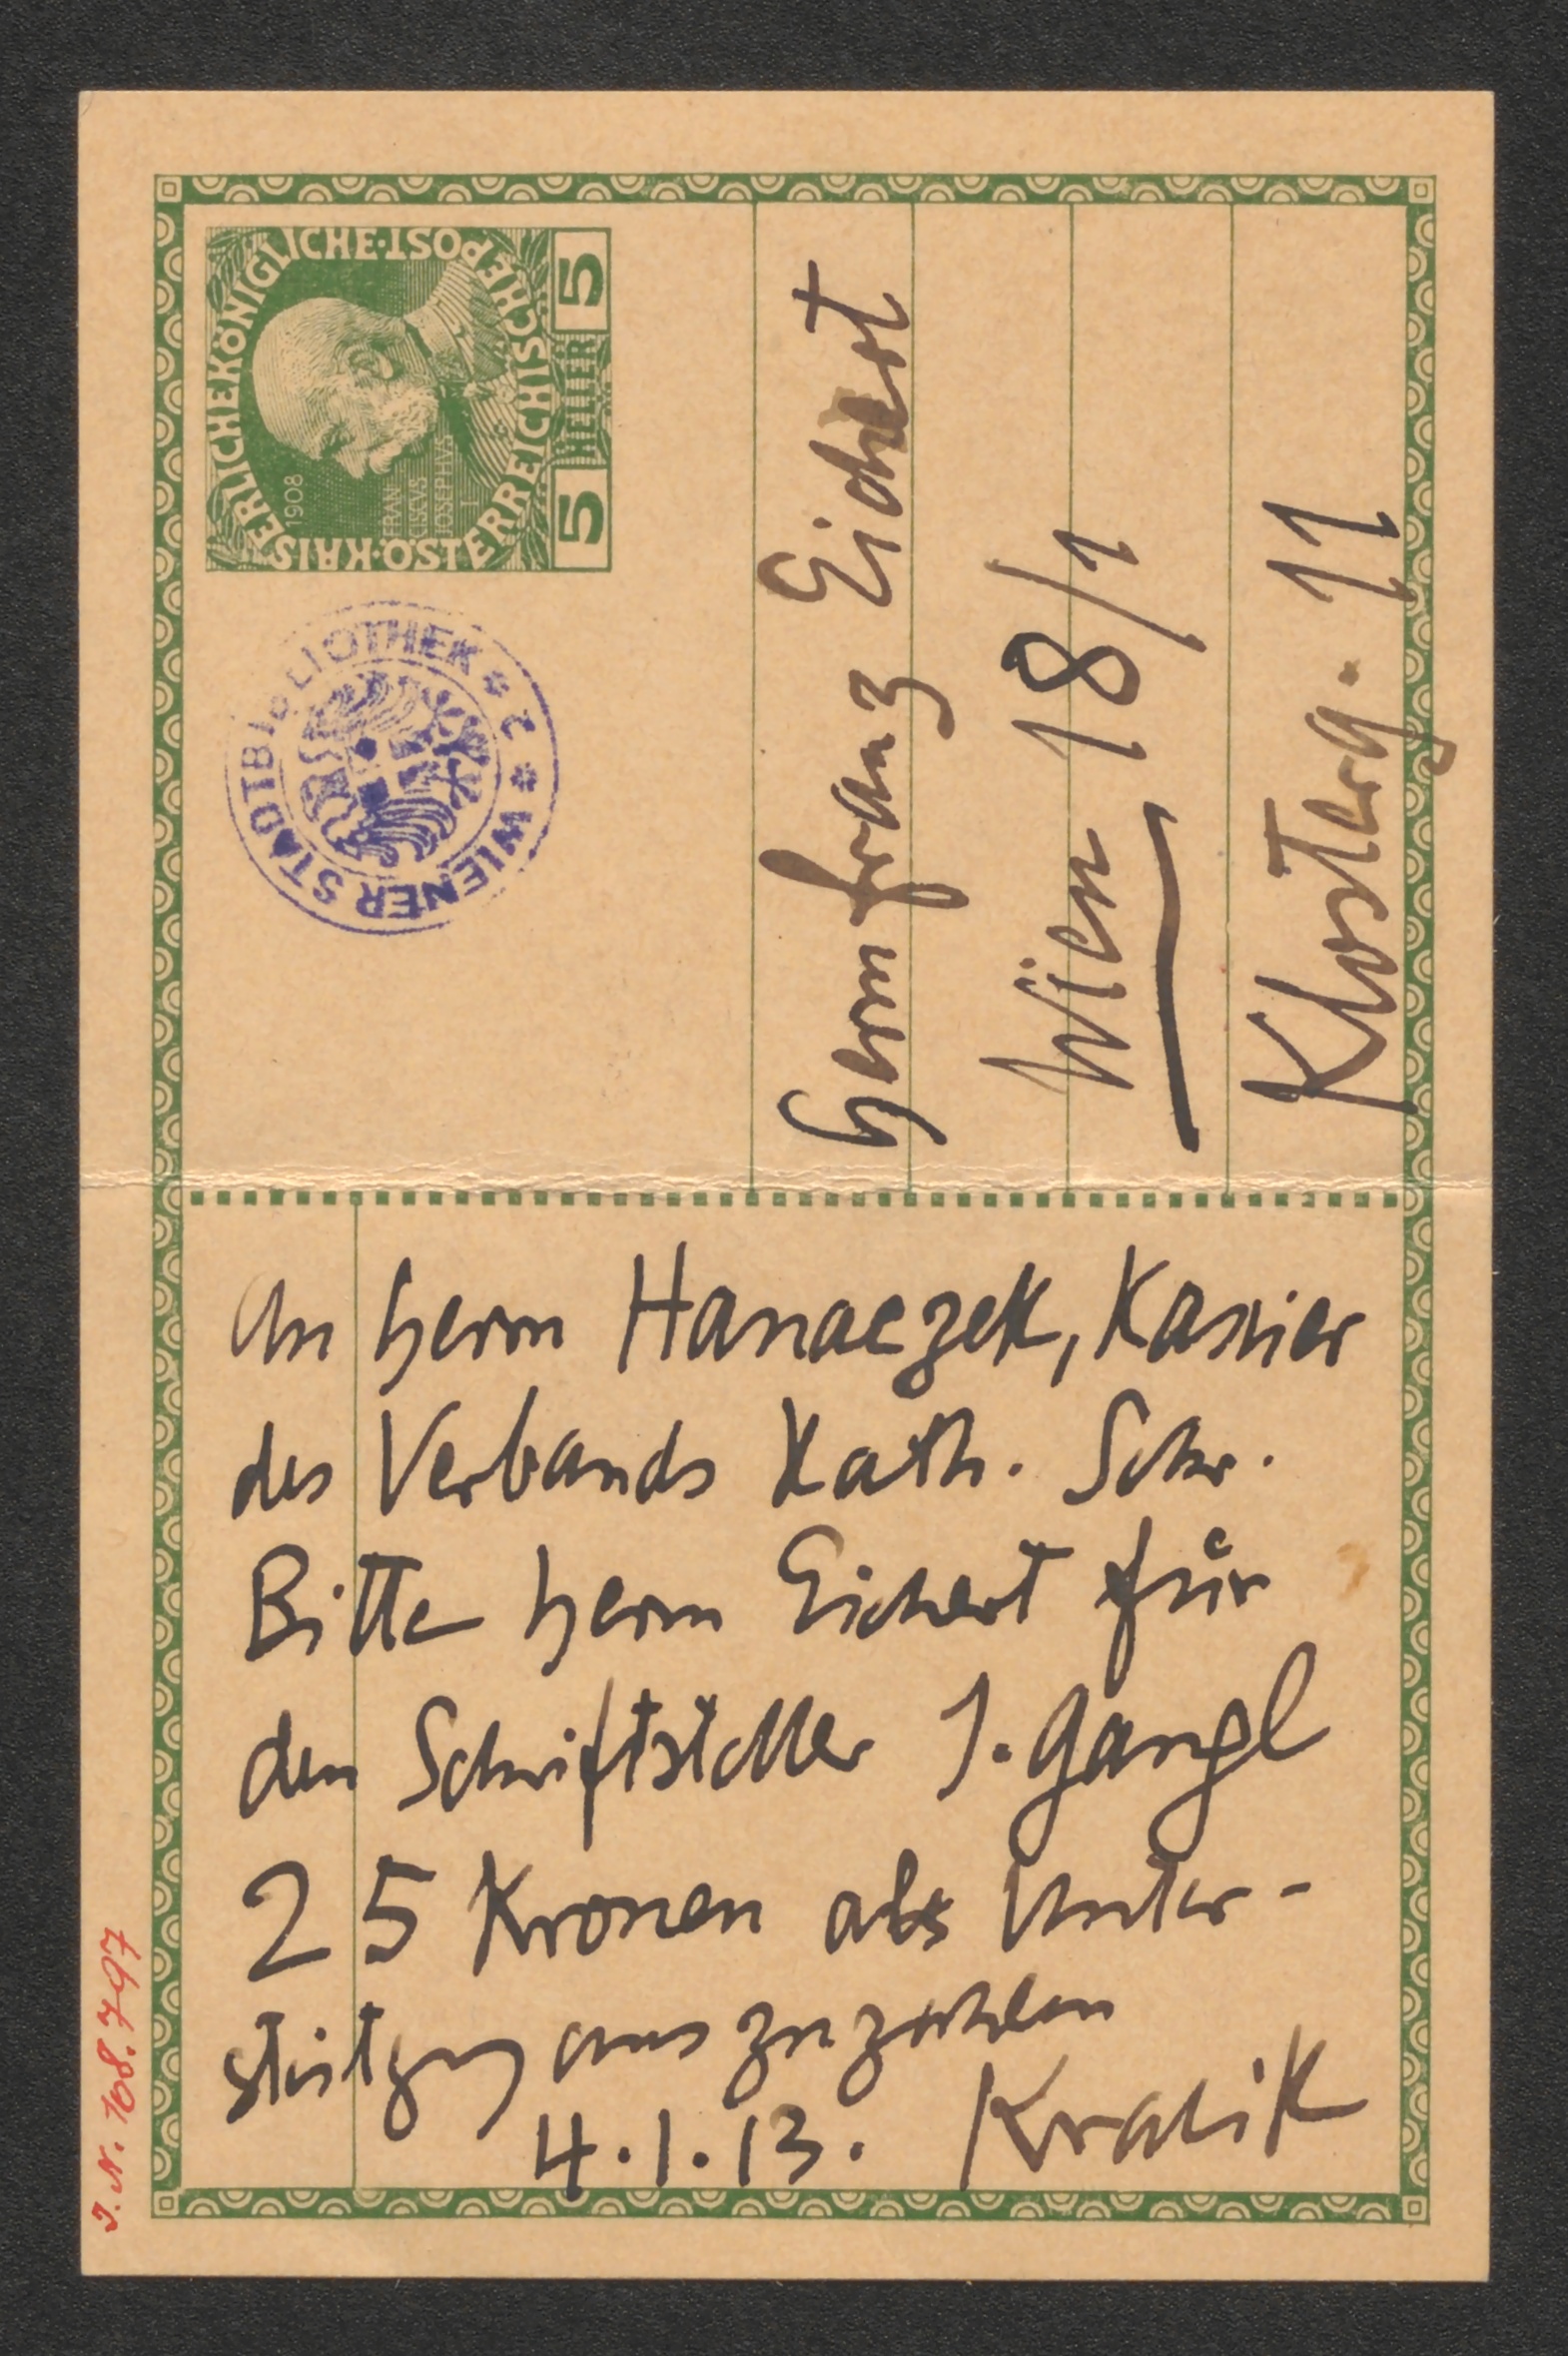 KAISERLICHEKÖNIGLICHE·ÖSTERREICHISCHEPOST·
1908
FRAN
CISCVS
IOSEPHVS
I
5 HELLER 5
WIENER STADTBIBLIOTHEK
Herrn Franz Eichert
Wien 18/1
Klosterg. 11
An Herrn Hanaczek, Kassier
des Verbands Kath. Schr.
Bitte Herrn Eichert für
den Schriftsteller J. Gangl
25 Kronen als Unter-
stützung auszuzahlen
4.1.13. Kralik
J. N. 168.797